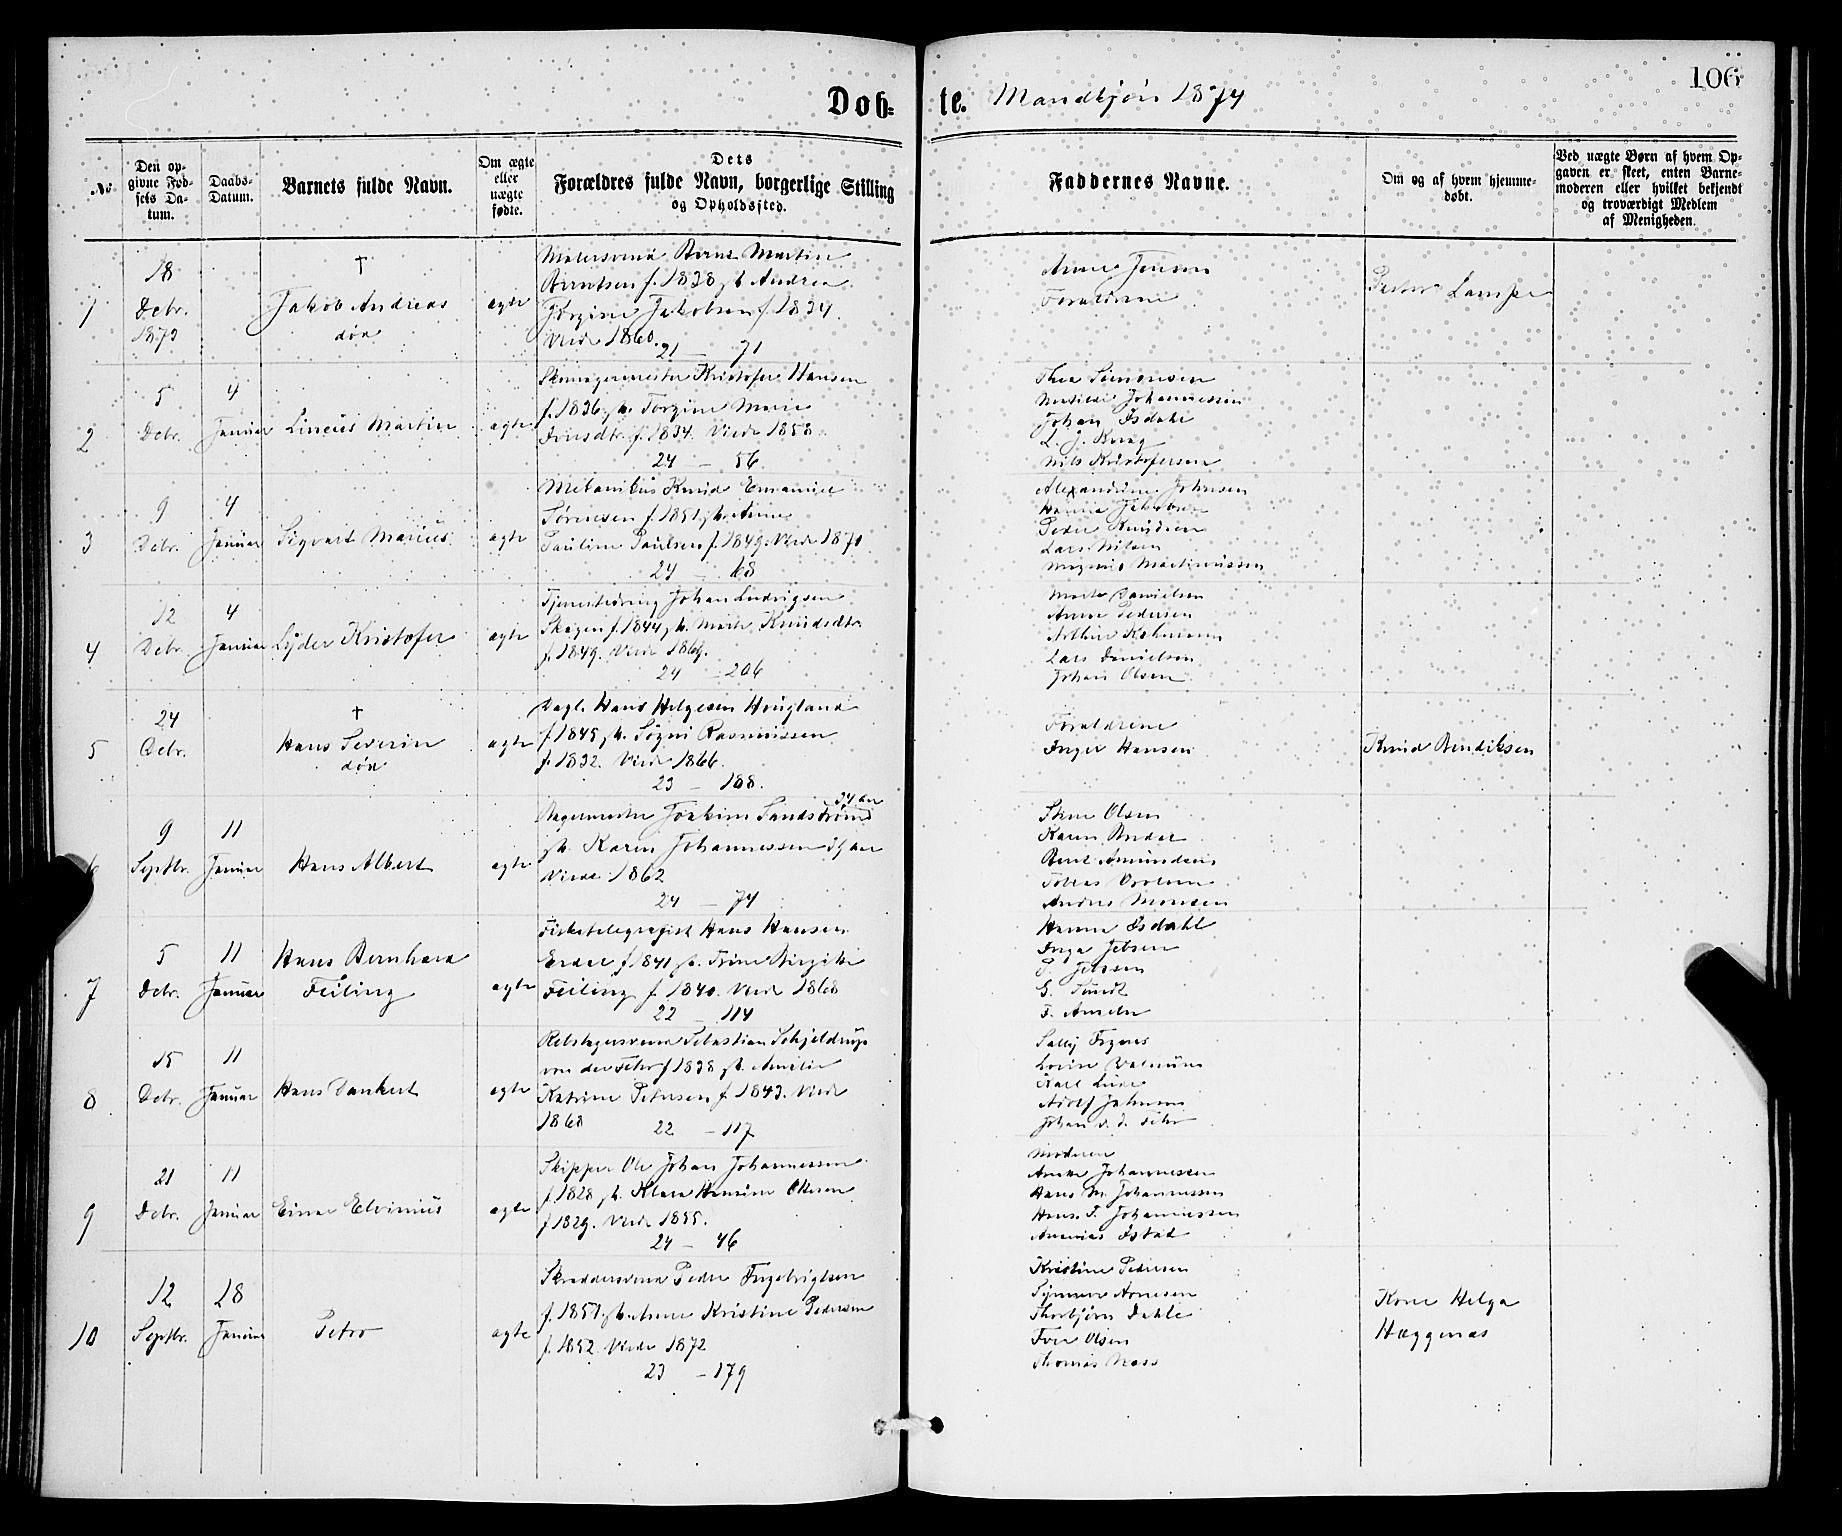 106
Døbte. Mandkjøn 1874
No
Den opgivne Fødsels Datum.
Daabs-Datum.
Barnets fulde Navn.
Om ægte eller uægte fødte.
Dets Forældres fulde Navn, borgerlige Stilling og Opholdssted.
Faddernes Navne.
Om og af hvem hjemmedøbt.
Ved uægte Børn af hvem Opgaven er skeet, enten Barnemoderen eller hvilket bekjendt og troværdigt Medlem af Menigheden.
1
18
Debr.
1873
†
Jakob Andreas
død
ægte
Malersvend Bernt Martin
Berntsen f. 1838, h. Andrea
Jakobsen f. 1834.
Viede 1860.
21 — 71
Anne Jensen
Forældrene
Lampe
2
5
Debr.
4
Januar
Lineüs Martin
ægte
Skomagermester Kristofer Hansen
f. 1836, h. Torgine Marie
f. 1834. Viede 1858
24 — 56.
Thea Simonsen
Matilde Johannessen
Johan Isdahl
L. J. Krag
Nils Kristofersen
3
9
Debr.
4
Januar
Sigvart Mariüs
ægte
Mekanikus Knud Emanuel
Sørensen f. 1851, h. Anne
Pauline Paulsen f. 1849. Viede 1871
24 — 68
Alexandrine Johnsen
Hanna Jakobsen
Peder Knudsen
Lars Nilsen
Magnus Martinussen
4
12
Debr.
4
Januar
Lyder Kristofer
ægte
Johan Ludvigsen
Skagen f. 1844, h. Marte Knudsdtr
f. 1849. Viede 1869.
24 — 206
Marte Danielsen
Anne Pedersen
Lars Danielsen
Johan Olsen
5
24
Debr.
†
Hans Severin
død
ægte
Dagl. Hans Helgesen Hougland
f. 1845, h. Rasmussen
f. 1832. Viede 1866.
23 — 188.
Forældrene
Inger Hansen
Knud Bendiksen
6
9
Septbr.
11
Januar
Hans Albert
ægte
Bagermester Joakim Sandstrøm 34 Aar
h. Karen Johannessen Aar
Viede 1862
24 — 74
Olsen
Karen
Bent Amundsen
Tobias
Andres Monsen
7
5
Debr.
11
Januar
Hans Bernhard
Feiling
ægte
Hans Hansen
Erdal f. 1841, h. Trine Birgitte
Feiling f. 1840. Viede 1868
22 — 114
Hanna Isdahl
Inga Jebsen
P. Jebsen
G. Tündt
8
15
Debr.
11
Januar
Hans Dankert
ægte
Rebslagersvend Sebastian Schjeldrup
von der Fehr f. 1838 h. Amalie
Katrine Petersen f. 1843. Viede
1868
22 — 117
Karl
Adolf Johnsen
Johan v. d. Fehr
9
21
Debr.
11
Januar
Einar Elvinius
ægte
Skipper Ole Johan Johannessen
f. 1828, h. Klara Hansine Olsen
f. 1829. Viede 1855.
24 — 46
Moderen
Anna Johannessen
Hans M. Johannessen
Hans T. Johannessen
Ananias Istad
10
12
Septbr.
18
Januar
Petro
ægte
Skræddersvend Peder Ingebrigtsen
f. 1851, h. Anne Kristine Pedersen
f. 1852. Viede 1872
23 — 179
Kristine Pedersen
Synneve Arnesen
Thorbjørn Dahle
Iver Olsen
Thomas Næss
Kone Helga
Hæggenes